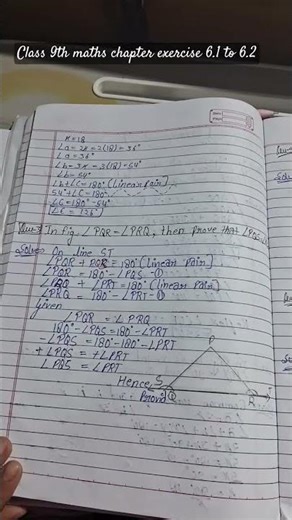 Class 9th maths chapter exercise 6.1 to 6.2
x=18
∠a = 2x = 2(18) = 36°
∠a = 36°
∠b = 3x = 3(18) = 54°
∠b = 54°
∠b+∠C=180° (Linear Pair)
54°+∠C=180°
∠C=180°-54°
∠C = 126°
In fig ∠PQR = ∠PRQ, then prove that ∠PQS
On line ST
∠PQR + PQS = 180° (Linear Pair)
∠PQR = 180° - ∠PQS - ①
∠PRQ + ∠PRT = 180° (linear Pair)
∠PRQ = 180° - ∠PRT - ②
Given
∠PQR = ∠PRQ
180° - ∠PQS = 180° - ∠PRT
- ∠PQS = 180° - 180° - ∠PRT
+ ∠PQS = + ∠PRT
∠PQS = ∠PRT
Hence
Proved
P
S
Q
R